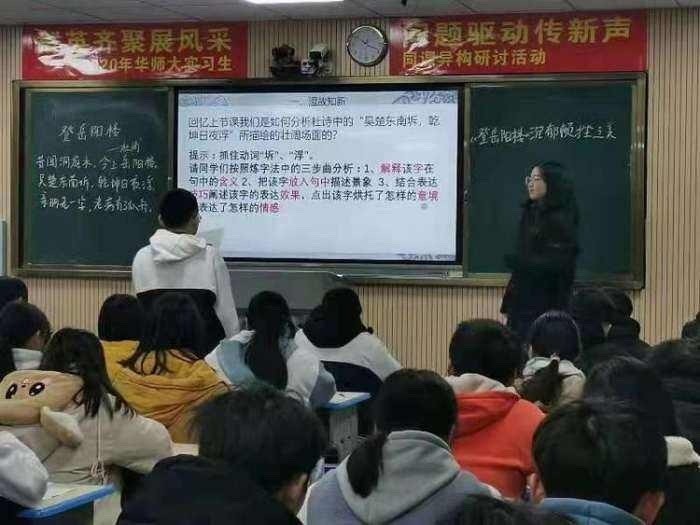 英齐聚展风采
2020年华师大实习生
题驱动传新声
同课异构研讨活动
登岳阳楼
杜甫
昔闻洞庭水，今上岳阳楼。
吴楚东南坼，乾坤日夜浮。
亲朋无一字，老病有孤舟。
一、温故知新
回忆上节课我们是如何分析杜诗中的“吴楚东南坼，乾
坤日夜浮”所描绘的壮阔场面的？
提示：抓住动词“坼”、“浮”。
请同学们按照炼字法中的三步曲分析：1、解释该字在
句中的含义 2、把该字放入句中描述景象 3、结合表达
技巧阐述该字的表达效果，点出该字烘托了怎样的意境
表达了怎样的情感
《登岳阳楼》沉郁顿挫之美